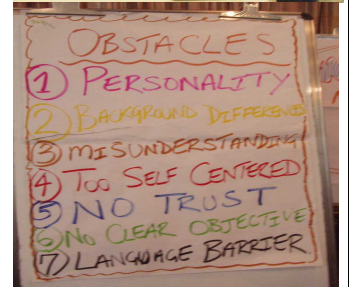 OBSTACLES
1 PERSONALITY
2 BACKGROUND DIFFERENCES
3 MISUNDERSTANDING
4 TOO SELF CENTERED
5 NO TRUST
6 NO CLEAR OBJECTIVE
7 LANGUAGE BARRIER